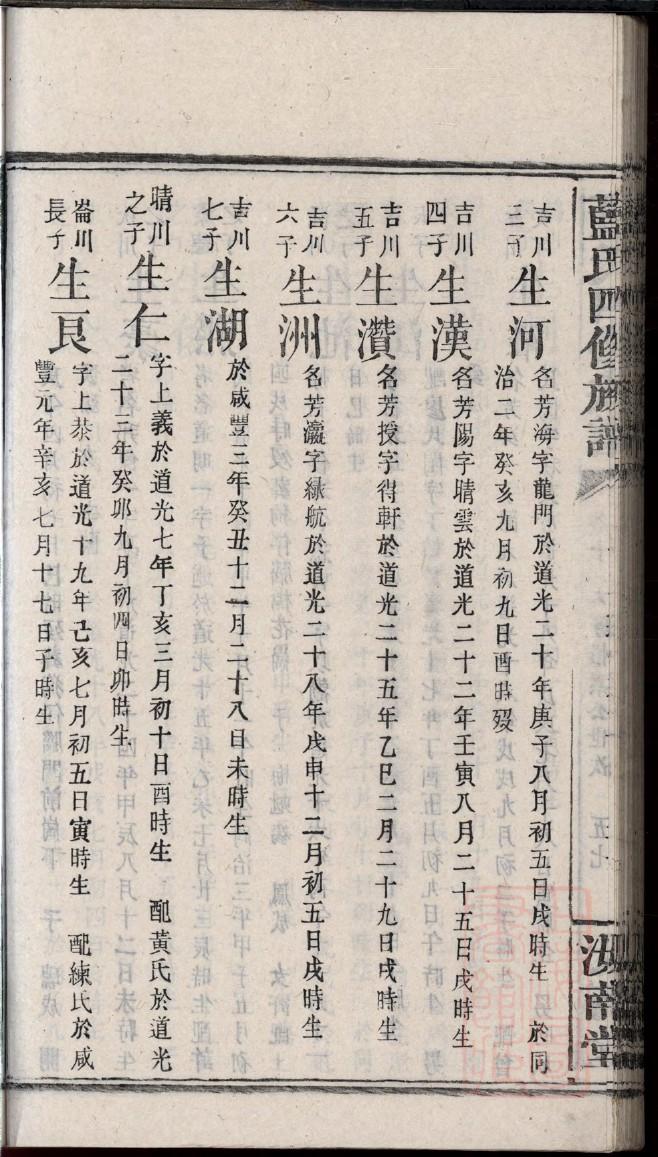 藍氏四修族譜
五七
汝南堂
吉川三子 生河 名芳海字龍門於道光二十年庚子八月初五日戌時生 於同
治二年癸亥九月初九日酉時歿
吉川四子 生漢 名芳陽字晴雲於道光二十二年壬寅八月二十五日戌時生
吉川五子 生瓚 名芳授字得軒於道光二十五年乙巳二月二十九日戌時生
吉川六子 生洲 名芳瀛字緑航於道光二十八年戊申十二月初五日戌時生
吉川七子 生湖 於咸豐三年癸丑十一月二十八日未時生
晴川之子 生仁 字上義於道光七年丁亥三月初十日酉時生 配黃氏於道光
二十三年癸卯九月初四日卯時生
崙川長子 生艮 字上恭於道光十九年己亥七月初五日寅時生 配練氏於咸
豐元年辛亥七月十七日子時生